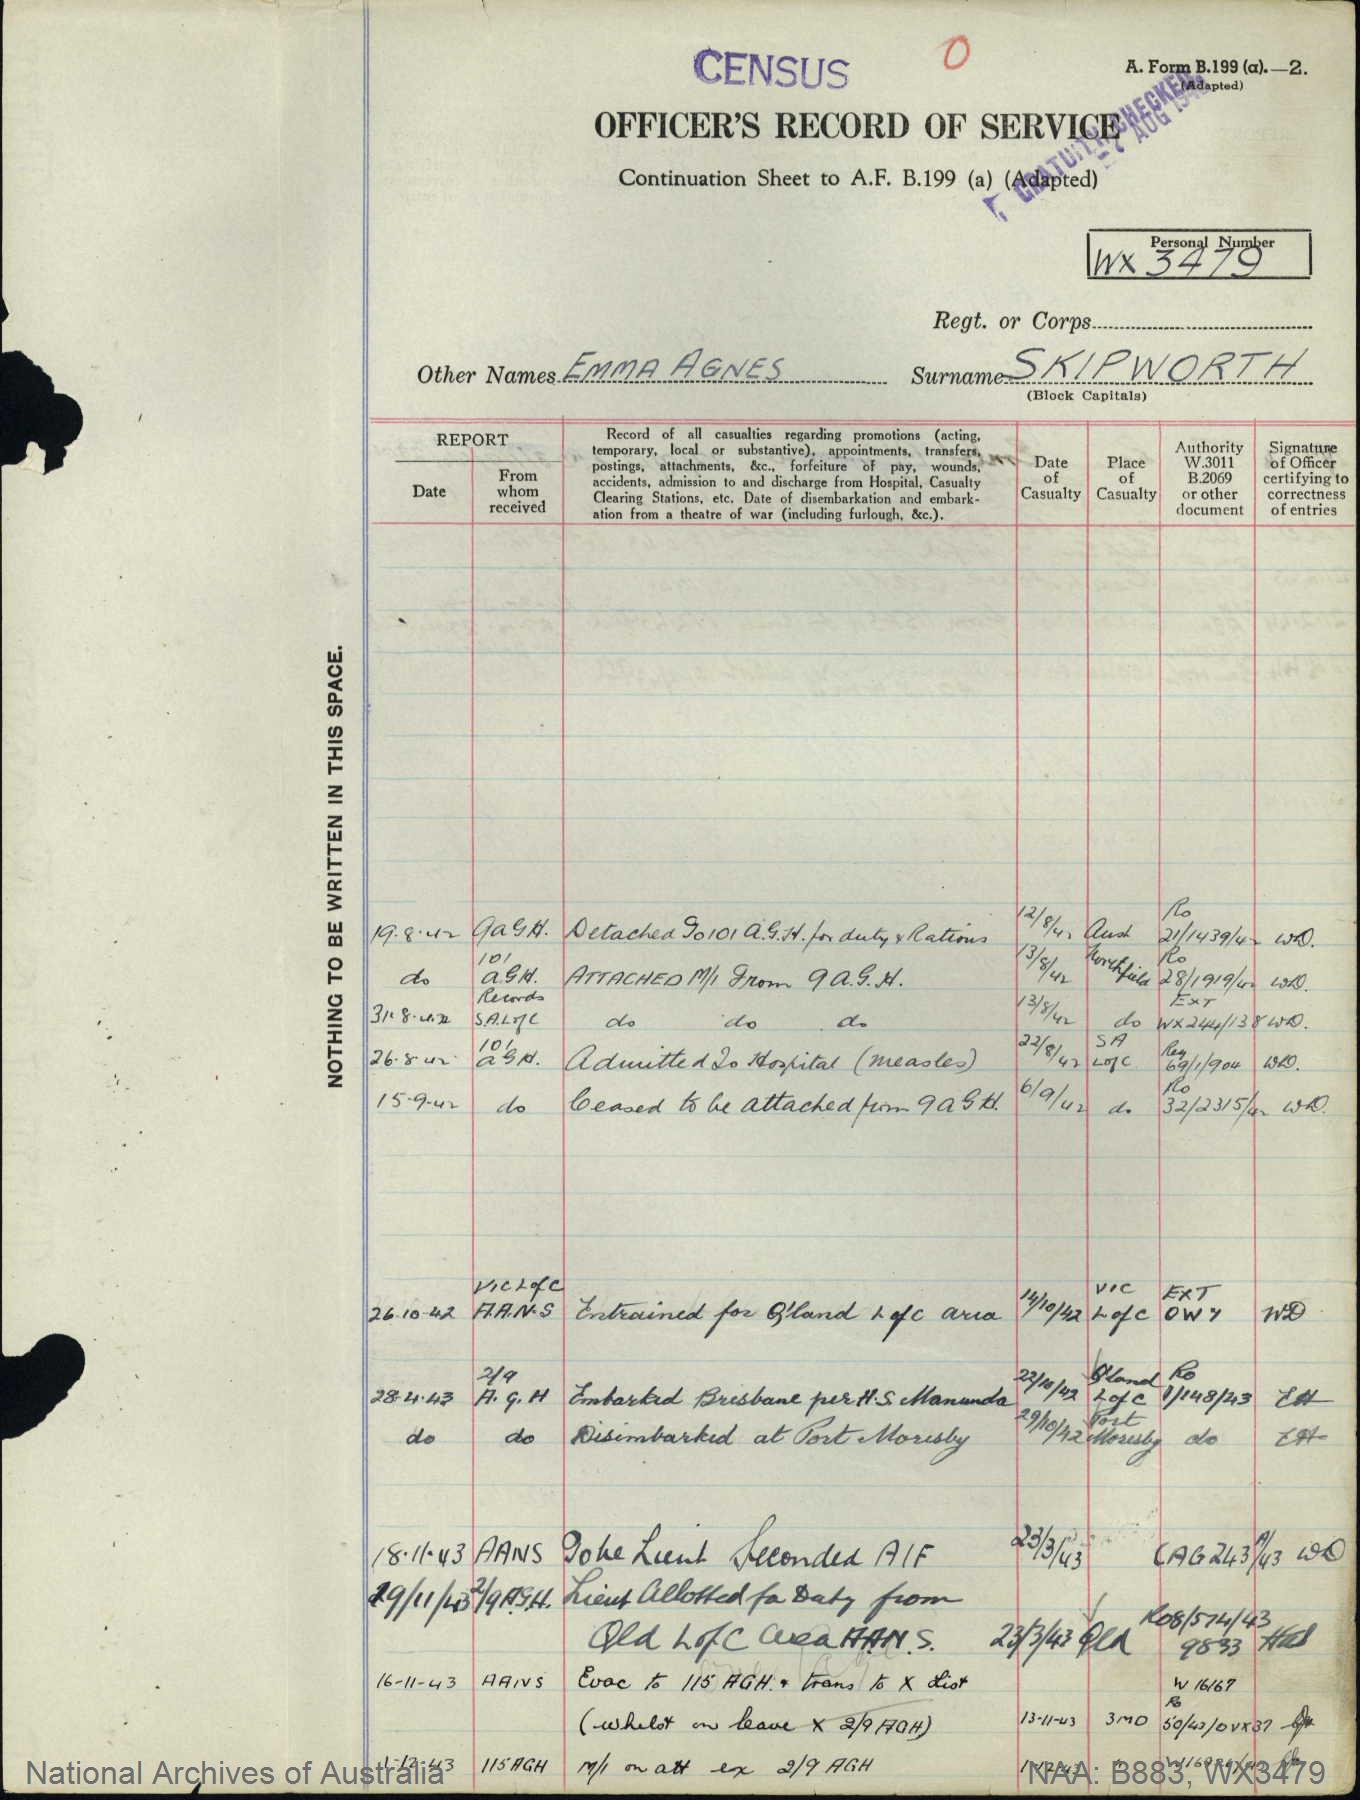 CENSUS
O
A. Form B.199 (a).—2.
(Adapted)
GRATUITY CHECKED
7 AUG
OFFICER'S RECORD OF SERVICE
Continuation Sheet to A.F. B.199 (a) (Adapted)
Personal Number
WX 3479
Regt. or Corps
Other Names EMMA AGNES Surname SKIPWORTH
(Block Capitals)
REPORT
Date
From whom received
Record of all casualties regarding promotions (acting,
temporary, local or substantive), appointments, transfers,
postings, attachments, &c., forfeiture of pay, wounds,
accidents, admission to and discharge from Hospital, Casualty
Clearing Stations, etc. Date of disembarkation and embark-
ation from a theatre of war (including furlough, &c.).
Date of Casualty
Place of Casualty
Authority W.3011 B.2069 or other document
Signature of Officer certifying to correctness of entries
NOTHING TO BE WRITTEN IN THIS SPACE.
19.8.42 9 AGH. Detached To 101 A.G.H. for duty & Rations 12/8/42 Aust Ro 21/1439/42 WD.
do 101 A.G.H. ATTACHED M/1 From 9 A.G.H. 13/8/42 Northfield Ro 28/1919/42 WD.
31.8.42 Records S.A. L of C do do do 13/8/42 do EXT WX244/138 WD.
26.8.42 101 AGH. Admitted To Hospital (measles) 22/8/42 SA L of C 69/1/904 WD.
15-9-42 do Ceased to be attached from 9 AGH. 6/9/42 do Ro 32/2315/42 WD.
26.10.42 VIC L of C A.A.N.S Entrained for Q'land L of C area 14/10/42 VIC L of C EXT OW7 WD
28.4.43 2/9 A.G.H Embarked Brisbane per H.S. Manunda 22/10/42 Q'land L of C Ro 1/148/43
do do Disimbarked at Port Moresby 29/10/42 Port Moresby do
18.11.43 AANS To be Lieut Seconded AIF 23/3/43 CAG 243/43 WD
29/11/43 2/9 AGH. Lieut Allotted for Duty from
Qld L of C area A.A.N.S. 23/3/43 Qld Ro 8/574/43 9833
16-11-43 AANS Evac to 115 AGH. & trans to X List W 16167
(whilst on leave X 2/9 AGH) 13-11-43 3MD Ro 50/43/0VX37
1-12-43 115 AGH M/1 on att ex 2/9 AGH
National Archives of Australia NAA: B883, WX3479